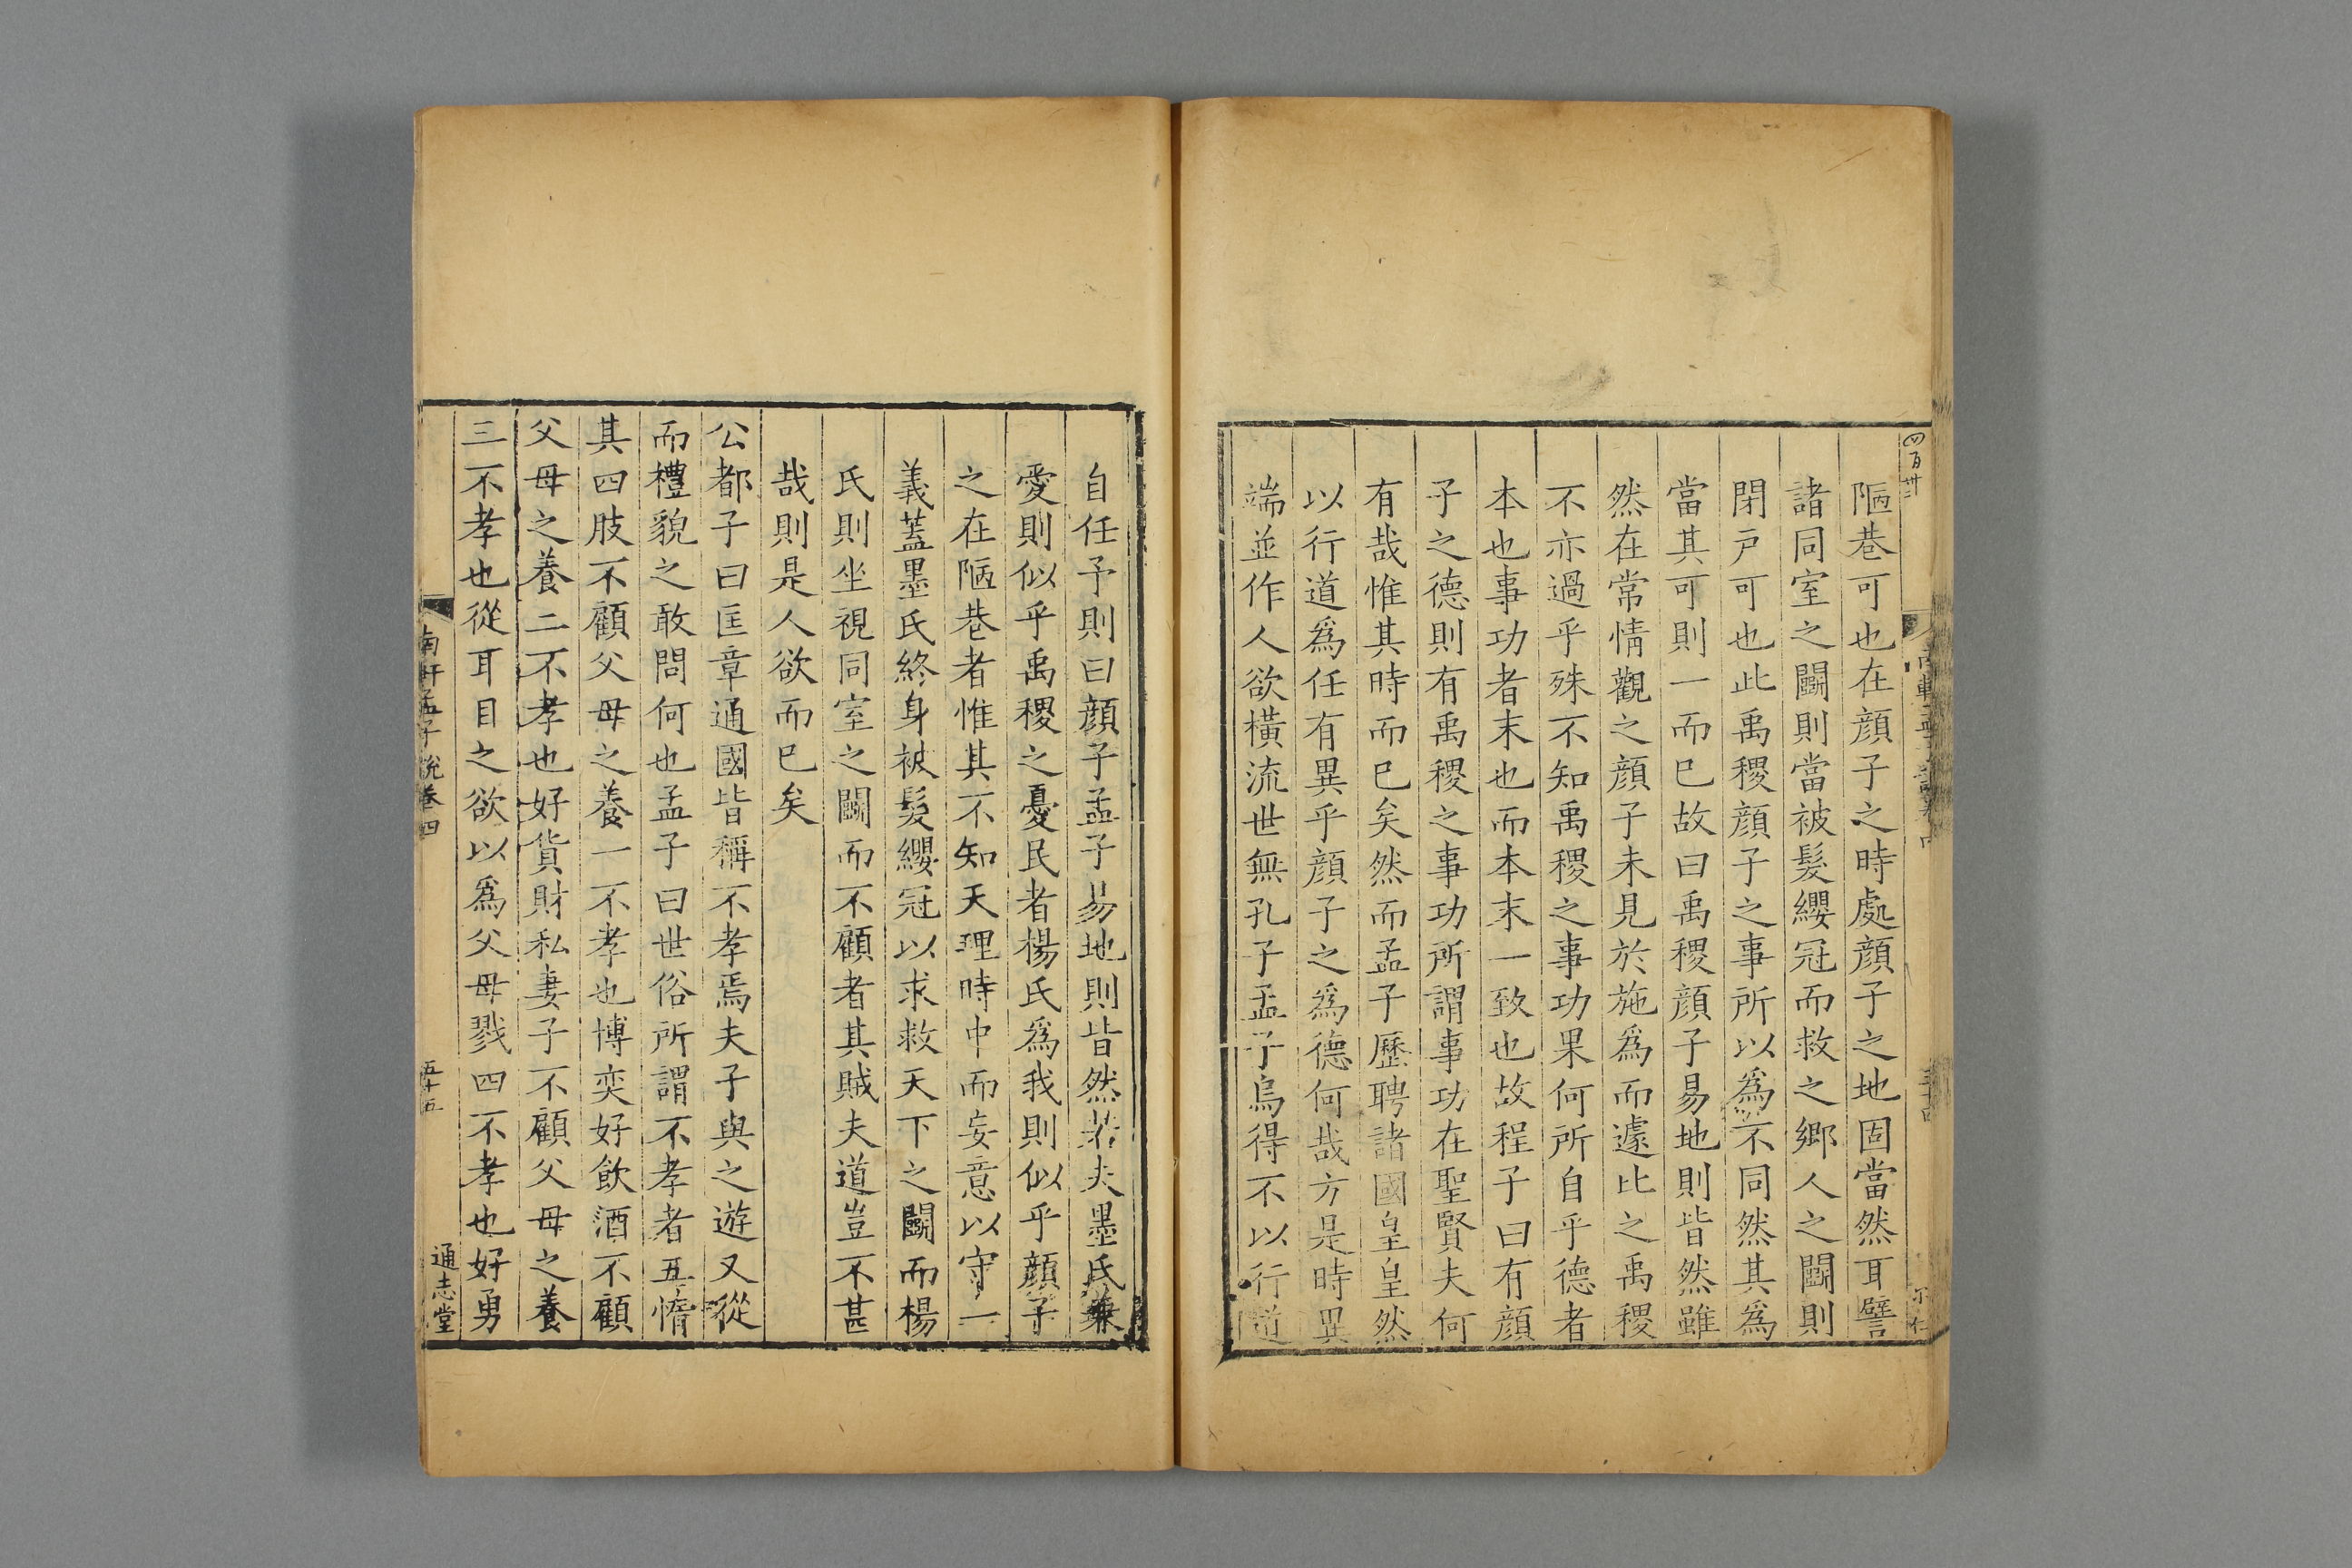 四百卅二
陋巷可也在顔子之時處顔子之地固當然耳譬
諸同室之鬬則當被髮纓冠而救之鄉人之鬬則
閉戸可也此禹稷顔子之事所以爲不同然其爲
當其可則一而巳故曰禹稷顔子易地則皆然雖
然在常情觀之顔子未見於施爲而遽比之禹稷
不亦過乎殊不知禹稷之事功果何所自乎德者
本也事功者末也而本末一致也故程子曰有顔
子之德則有禹稷之事功所謂事功在聖賢夫何
有哉惟其時而巳矣然而孟子歷聘諸國皇皇然
以行道爲任有異乎顔子之爲德何哉方是時異
端並作人欲橫流世無孔子孟子烏得不以行道
自任予則曰顔子孟子易地則皆然若夫墨氏兼
愛則似乎禹稷之憂民者楊氏爲我則似乎顔子
之在陋巷者惟其不知天理時中而妄意以守一
義蓋墨氏終身被髮纓冠以求救天下之鬬而楊
氏則坐視同室之鬬而不顧者其賊夫道豈不甚
哉則是人欲而巳矣
公都子曰匡章通國皆稱不孝焉夫子與之遊又從
而禮貌之敢問何也孟子曰世俗所謂不孝者五惰
其四肢不顧父母之養一不孝也博奕好飲酒不顧
父母之養二不孝也好貨財私妻子不顧父母之養
三不孝也從耳目之欲以爲父母戮四不孝也好勇
南軒孟子說卷四
五十五
通志堂